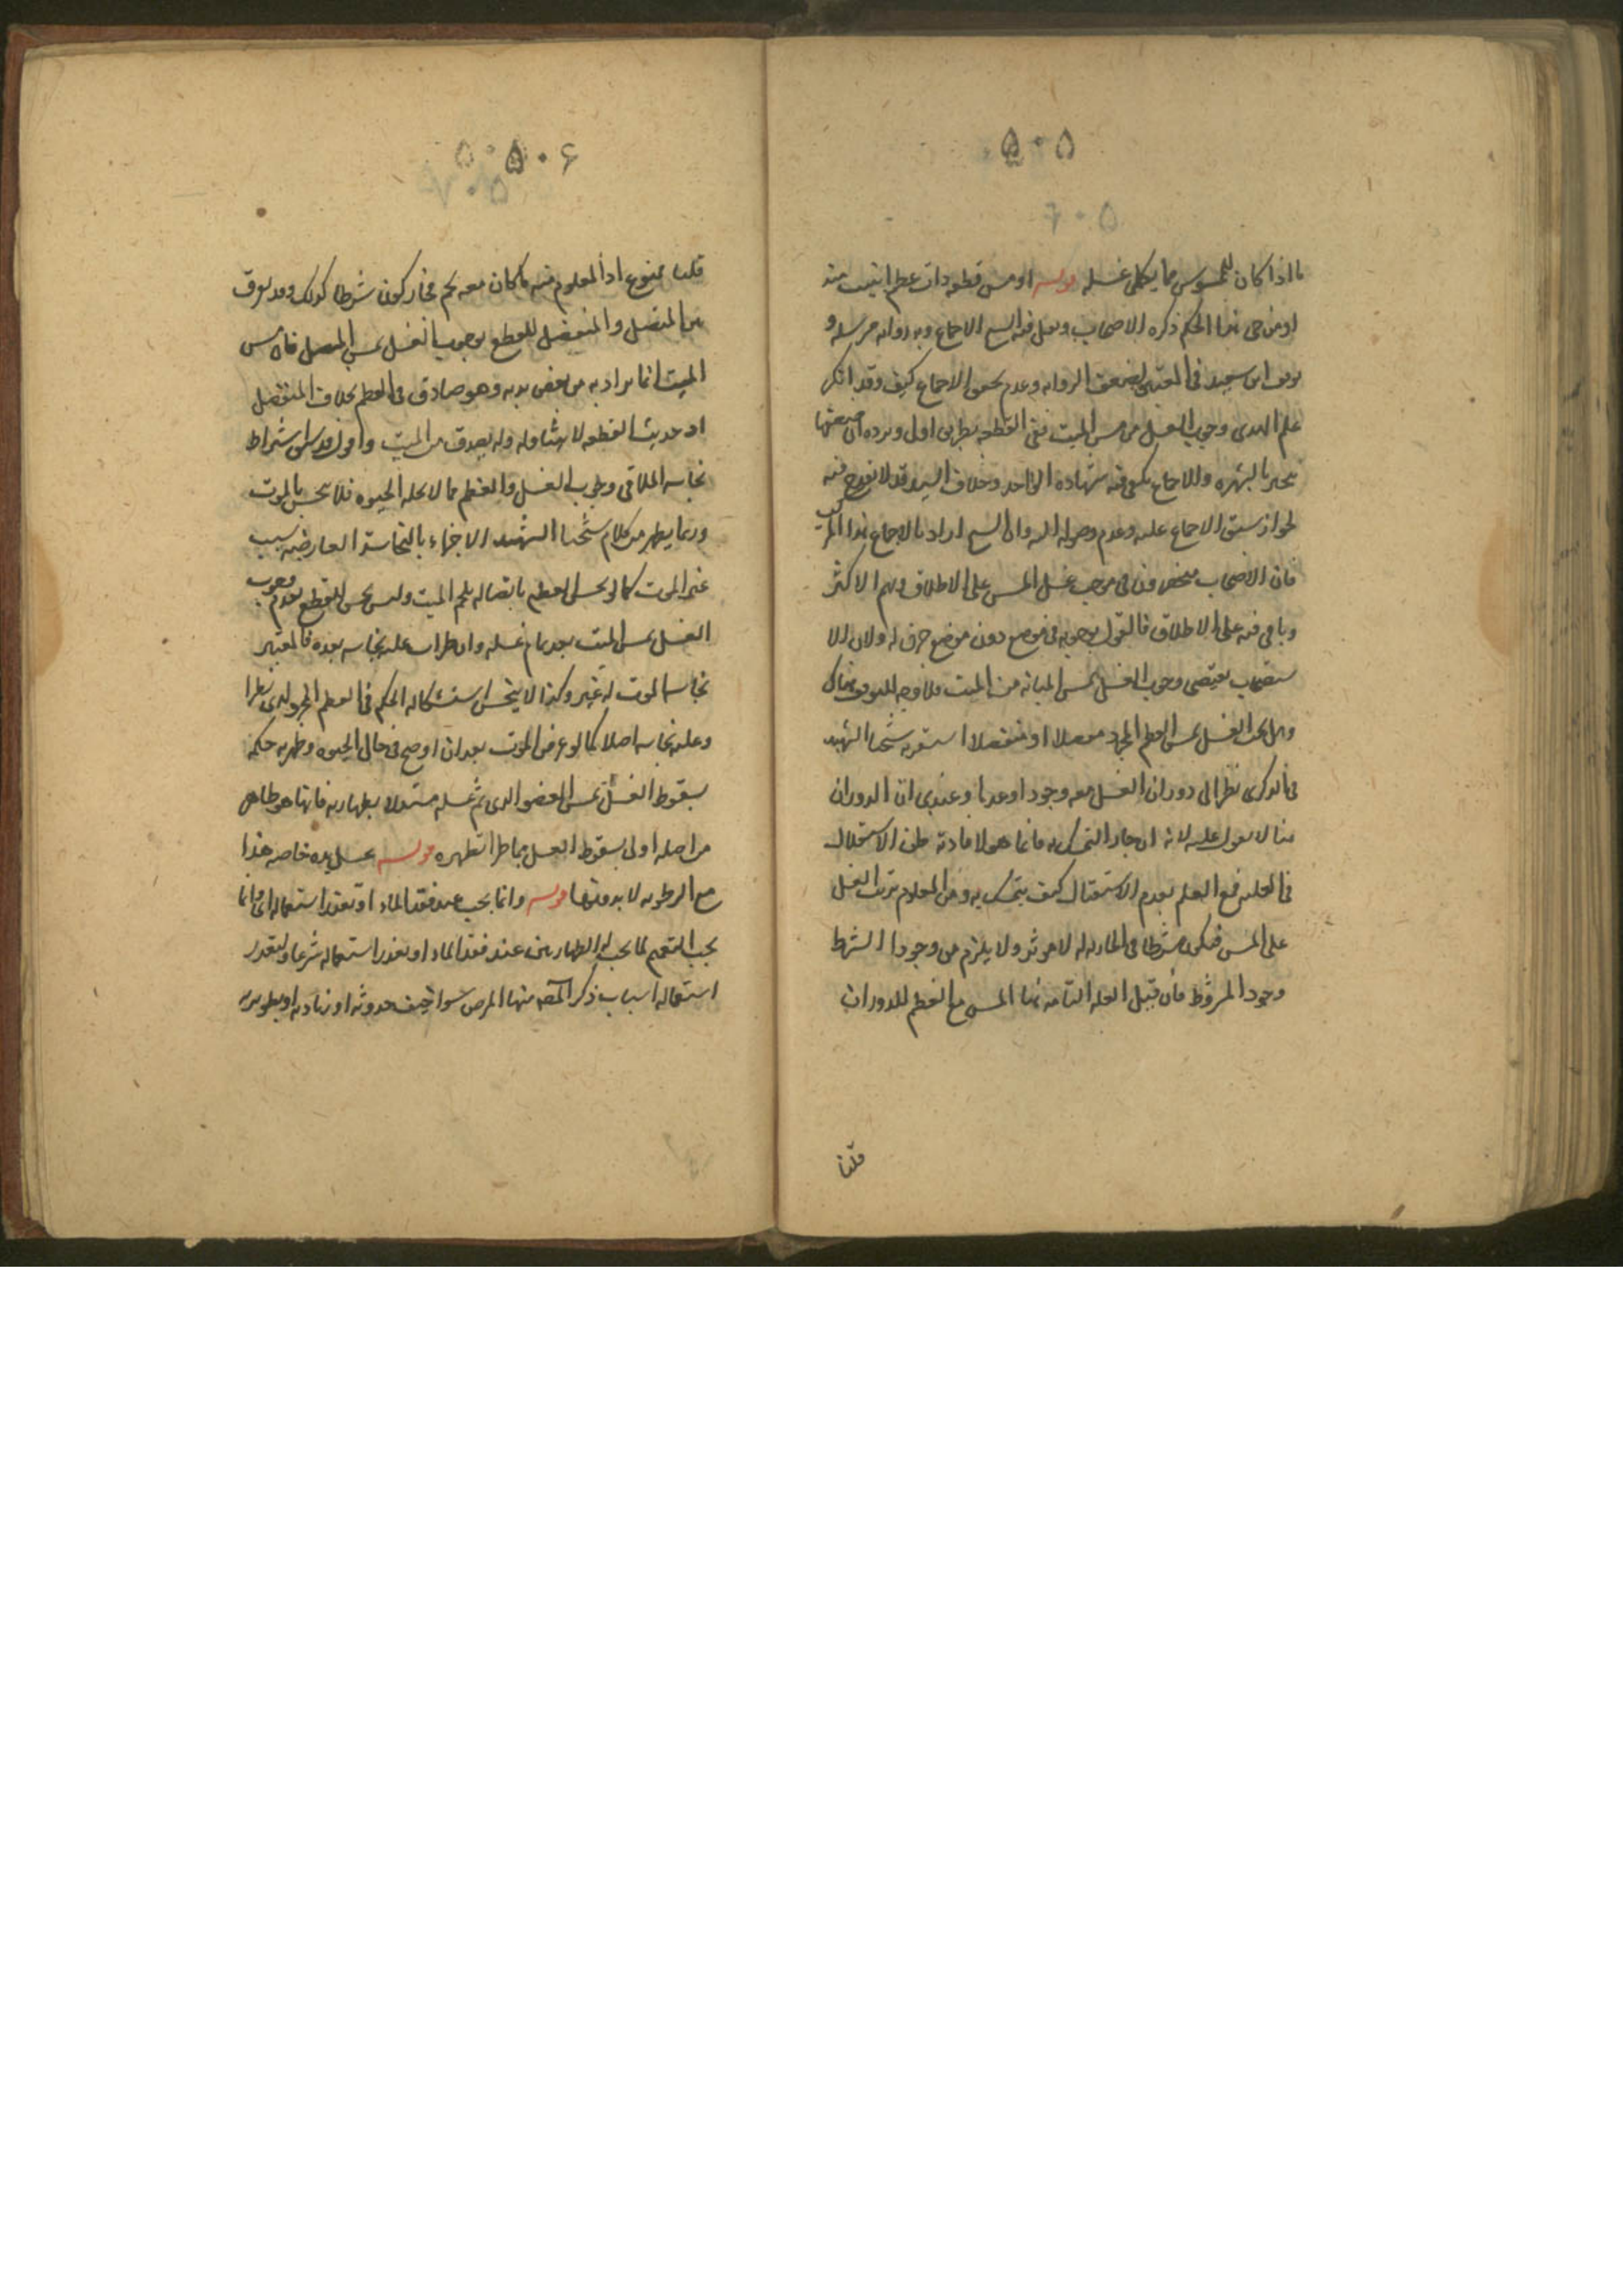 ۵۰۵
ما اذا كان الممسوس مما يكمل غسله قوله او مس قطعة ذات عظم ابينت منه
او من حى هذا الحكم ذكره الاصحاب ونقل فيه الشيخ الاجماع وبه رواية مرسلة و
توقف ابن سعيد فى المعتبر لضعف الرواية وعدم تحقق الاجماع كيف وقد انكر
علم الهدى وجوب الغسل من مس الميت ففى القطعة بطريق اولى ويرده ان ضعفها
ينجبر بالشهرة والاجماع يكفى فيه شهادة الواحد وخلاف السيد قد لا يقدح فيه
لجواز سبق الاجماع عليه وعدم وصوله اليه وان الشيخ اراد بالاجماع هذا المركب
فان الاصحاب منحصرون فى موجب غسل المس على الاطلاق وهم الاكثر
ونافى فيه على الاطلاق فالقول بوجوبه فى موضع دون موضع خرق له ولان الا
ستصحاب يقتضى وجوب الغسل بمس المبانة من الميت فلا وجه للتوقف هناك
وهل يجب الغسل بمس العظم المجرد متصلا او منفصلا استقربه شيخنا الشهيد
فى الذكرى نظرا الى دوران الغسل معه وجودا وعدما وعندى ان الدوران
هنا لا يعول عليه لانه ان جاز التمسك به فانما هو لافادته ظن الاستقلال
فى العلية فمع العلم بعدم الاستقلال كيف يتمسك به ومن المعلوم ترتب الغسل
على المس فيكون شرطا فى لا مؤثر ولا يلزم من وجود الشرط
وجود المشروط فان قيل العلة التامة هنا المس مع العظم للدوران
قلنا
۵۰۶
قلنا ممنوع اذ المعلوم منه ما كان معه لحم فجاز كونه شرطا كذلك وقد يفرق
بين المتصل والمنفصل للقطع بوجوب الغسل بمس المتصل فان مس
الميت انما يراد به مس بعض بدنه وهو صادق فى العظم بخلاف المنفصل
اذ حديث القطعة لا يتناوله ولم يصدق مس الميت واقول قد سبق اشتراط
نجاسة الملاقى وجوب الغسل والعظم مما لا تحله الحيوة فلا ينجس بالموت
وربما يظهر من كلام شيخنا الشهيد الاجزاء بالنجاسة العارضة بسبب
غير الموت كما لو نجس العظم باتصاله بلحم الميت وليس بحسن للقطع بعدم وجوب
الغسل بمس الميت بعد تمام غسله وان طرات عليه نجاسة بعده فالمعتبر
نجاسة الموت لا غير وكذا لا ينحس استشكاله الحكم فى العظم المجرد لدى نظرا
وعليه نجاسة اصلا كما لو عرض الموت بعد ان اوضح فى حال الحيوة وطهر به حكمه
بسقوط الغسل بمس العضو الذى تم غسله مستدلا بطهارته فانها هو طاهر
من اصله اولى بسقوط الغسل مما طرا تطهره قوله بغسل يده خاصة هذا
مع الرطوبة لا بدونها قوله وانما يجب عند فقد الماء او تعذر استعماله اى وانما
يجب التيمم لما يجب له الطهارتين عند فقد الماء او تعذر استعماله شرعا ولتعذر
استعماله اسباب ذكر المصنف منها المرض سواء خيف حدوثه او زيادته او بطؤ برئه